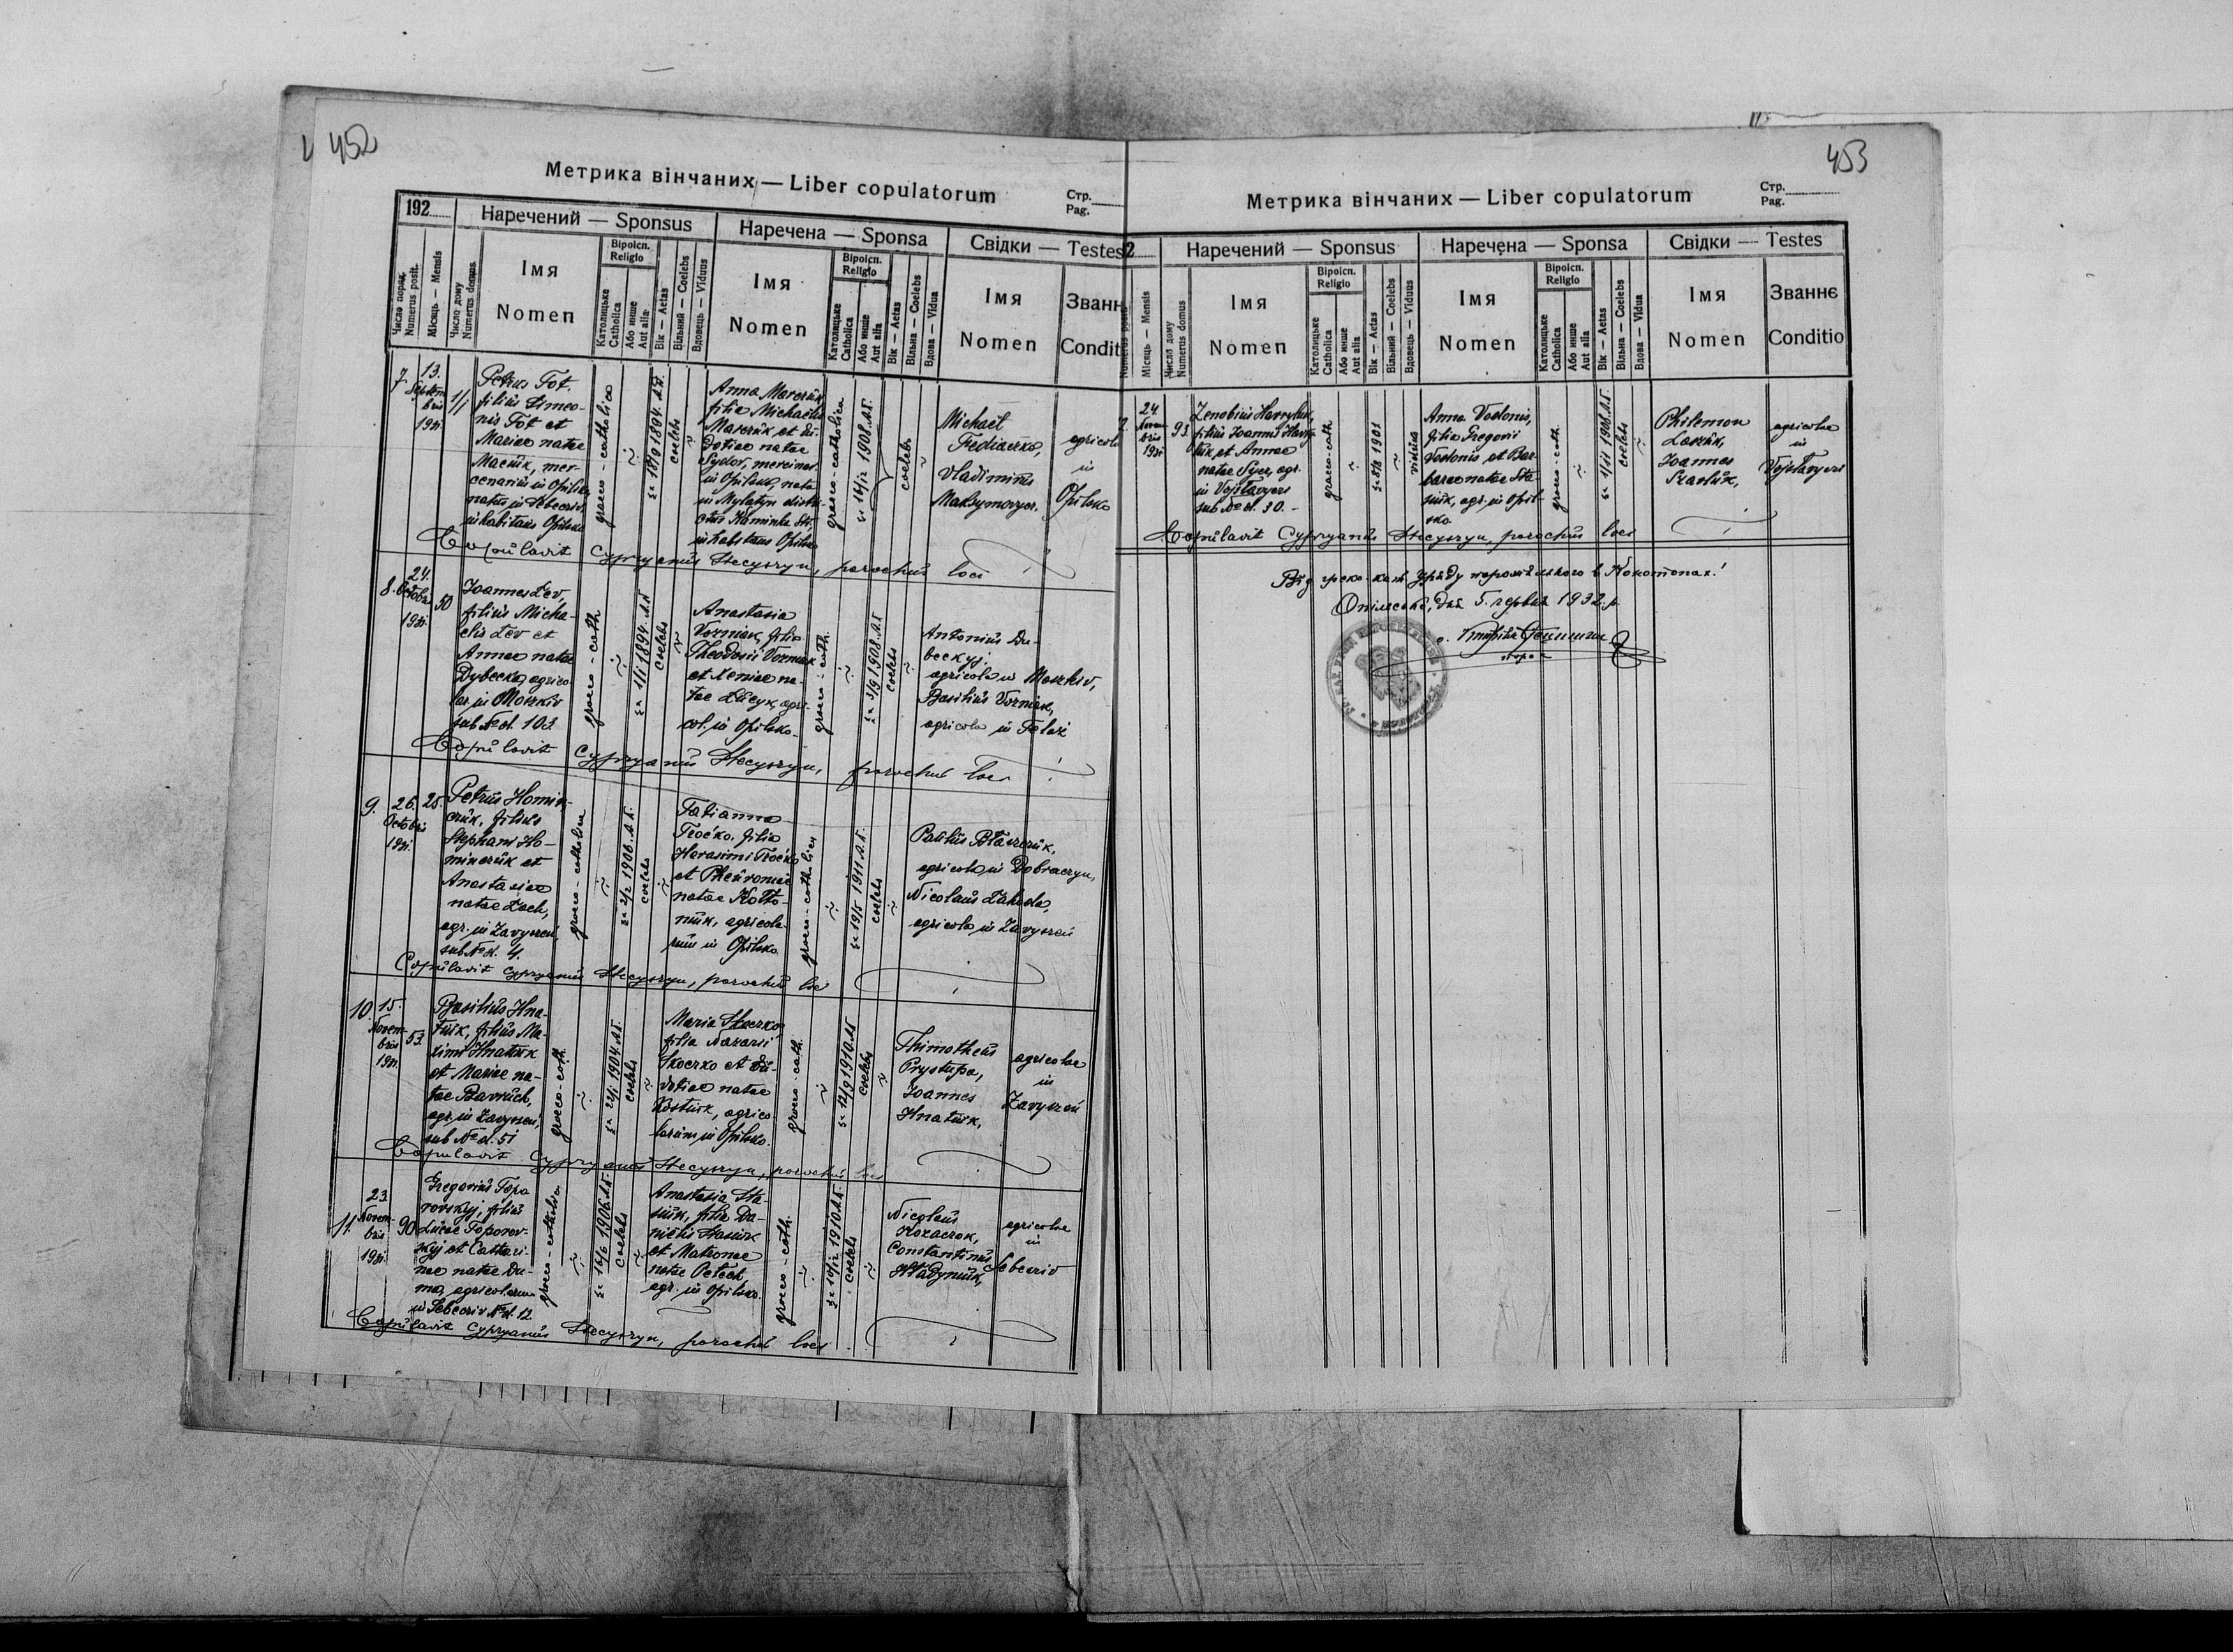 452
Метрика вінчаних — Liber copulatorum
Стр.
Pag.
192
Наречений — Sponsus
Наречена — Sponsa
Свідки — Testes
Число поряд.
Numerus posit.
Місяць — Mensis
Число дому
Numerus domus.
Імя
Nomen
Віроісп.
Religio
Католицьке
Catholica
Або инше
Aut alia
Вік — Aetas
Вільний — Coelebs
Вдовець — Viduus
Імя
Nomen
Віроісп.
Religio
Католицьке
Catholica
Або инше
Aut alia
Вік — Aetas
Вільна — Coelebs
Вдова — Vidua
Імя
Nomen
Званн
Condit
7.
13.
Septem
bris
1931.
11
Petrus Tot,
filius Simeo-
nis Tot et
Mariae natae
Maciuk, mer-
cenarius in Opilsko
natus in Sebecriv,
inhabitans Opilsko
graeco-catholica
18/9 1894. A.D.
coelebs
Anna Marczuk
filia Michaelis
Marczuk, et Eu-
dotiae natae
Sydor, mercinar.
in Opilsko, nata
in Mylatyn distri-
ctus Kaminka Str.
inhabitans Opilsko
graeco-catholica
16/12 1908. A.D.
coelebs
Michael
Fediaczko,
Vladimirus
Maksymovycz.
agricola
in
Opilsko
Copulavit Cypryanus Stecyszyn, parochus loci
8.
24.
Octobr.
1931.
50
Joannes Lev,
filius Micha-
elis Lev et
Annae natae
Dybecka, agrico-
lar. in Moszkiv
sub No d. 103
graeco-cath
1/1 1894. A.D.
coelebs
Anastasia
Vozniak, filia
Theodosii Vozniak
et Xeniae na-
tae Lacyk, agri-
col. in Opilsko.
graeco-cath.
3/9 1908. A.D.
coelebs
Antonius Du-
beckyj.
agricola in Moszkiv,
Basilius Vozniak,
agricola in Telaż
Copulavit Cypryanus Stecyszyn, parochus loci
9.
26.
Octobris
1931.
25.
Petrus Homin-
czuk, filius
Stephani Ho-
minczuk et
Anastasiae
natae Lach,
agr. in Zavyszeń
sub No d. 4.
graeco-catholica
2/2 1906. A.D.
coelebs
Tatianna
Troćko, filia
Harasimi Troćko
et Pheuroniae
natae Kołto-
niuk, agricola-
rum in Opilsko
graeco-catholica
19/5 1911 A.D.
coelebs
Paulus Błaszczuk,
agricola in Dobraczyn,
Nicolaus Zahoda,
agricola in Zavyszeń
Copulavit Cypryanus Stecyszyn, parochus loci
10.
15.
Novem-
bris
1931.
53.
Basilius Hna-
tiuk, filius Ma-
ximi Hnatiuk
et Mariae na-
tae Bavruch,
agr. in Zavyszeń,
sub No d. 51
graeco-cath.
22/1 1904. A.D.
coelebs
Maria Skoczko
filia Nazarii
Skoczko et Eu-
dotiae natae
Kostiuk, agrico-
larum in Opilsko.
graeco-cath.
12/9 1910. A.D.
coelebs
Thimotheus
Prystupa,
Joannes
Hnatiuk,
agricolae
in
Zavyszeń
Copulavit Cypryanus Stecyszyn, parochus loci
11.
23.
Novem-
bris
1931.
90
Gregorius Topo
rovskyj, filius
Lucae Toporov-
skyj et Cathari-
nae natae Du-
ma, agricolarum
in Sebecriv No d. 12
graeco-catholica
16/6 1906. A.D.
coelebs
Anastasia Sta-
siuk, filia Da-
nielis Stasiuk
et Matronae
natae Petech
agr. in Opilsko.
graeco-cath.
10/12 1910. A.D.
coelebs
Nicolaus
Kozaczok,
Constantinus
Hładyniuk,
agricolae
in
Sebecriv
Copulavit Cypryanus Stecyszyn, parochus loci
453
Метрика вінчаних — Liber copulatorum
Стр.
Pag.
2
Наречений — Sponsus
Наречена — Sponsa
Свідки — Testes
Місяць — Mensis
Число дому
Numerus domus
Імя
Nomen
Віроісп.
Religio
Католицьке
Catholica
Або инше
Aut alia
Вік — Aetas
Вільний — Coelebs
Вдовець — Viduus
Імя
Nomen
Віроісп.
Religio
Католицьке
Catholica
Або инше
Aut alia
Вік — Aetas
Вільна — Coelebs
Вдова — Vidua
Імя
Nomen
Званнє
Conditio
24.
Novem-
bris
1931
93.
Zenobius Havryluk,
filius Joannis Havry-
luk, et Annae
natae Sycz, agr.
in Vojslavycze
sub No d. 30.
graeco-cath.
1901
viduus
Anna Vodonis,
filia Gregorii
Vodonis et Bar-
barae natae Sta-
siuk, agr. in Opil-
sko
graeco-cath.
1/11 1908. A.D.
coelebs
Philemon
Laszuk,
Joannes
Pavluk,
agricolae
in
Vojslavycze
Copulavit Cypryanus Stecyszyn, parochus loci
Від греко-кат. Уряду парохіяльного в
Опільсько, дня 5. червня 1932. р.